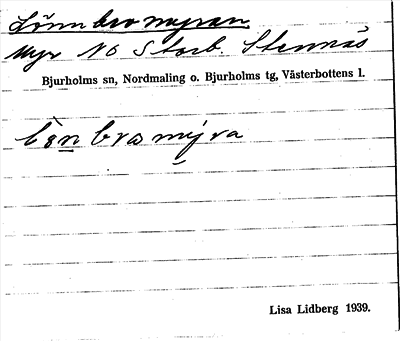 Lönnbromyran
Myr NO Storb. Stennäs
Bjurholms sn, Nordmaling o. Bjurholms tg, Västerbottens l.
Lisa Lidberg 1939.